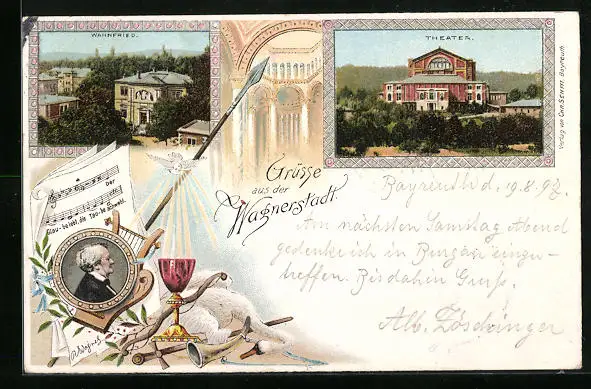 WAHNFRIED.
THEATER.
Verlag von Chr. Senfft, Bayreuth
Der
Glau-be lebt, die Tau-be schwebt.
Grüsse
aus der
Wagnerstadt.
Bayreuth d. 19.8.97.
Am nächsten Samstag Abend
gedenke ich in einzu-
treffen. Bis dahin Gruß.
Alb.
R Wagner